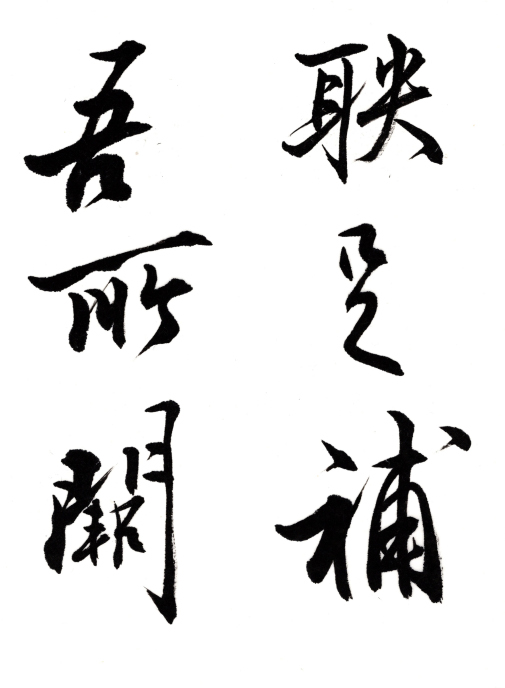 足補
吾所闕